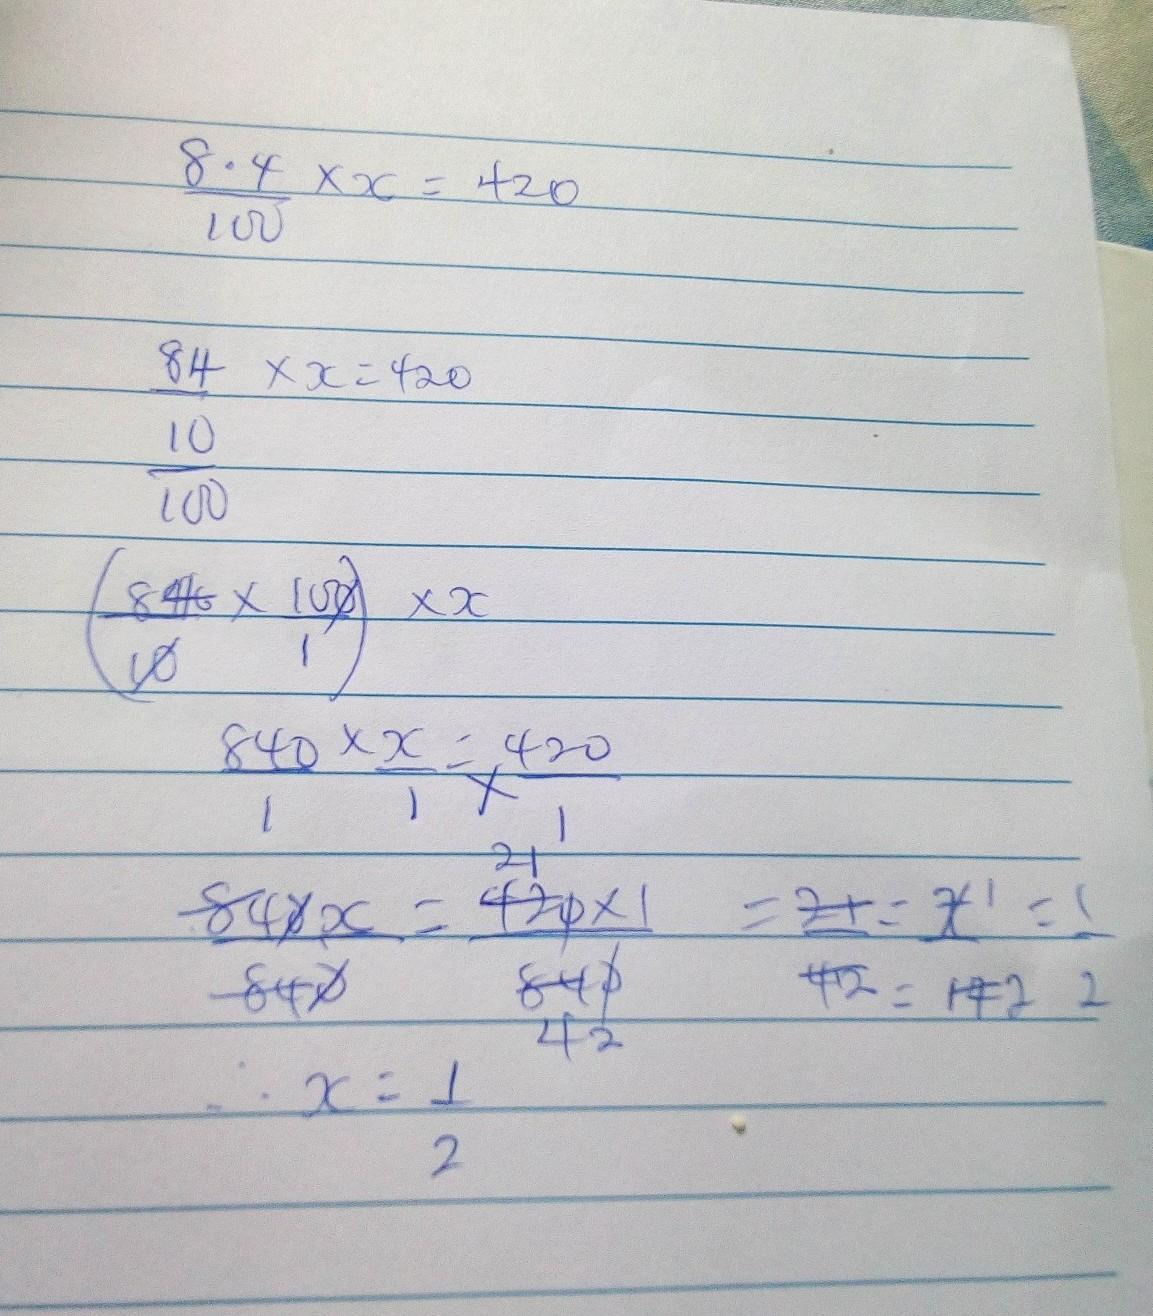 8.4/100 × x = 420
84/10/100 × x = 420
(84/10 × 100/1) × x
840/1 × x/1 = 420/1
21
840x/840 = 420×1/840 = 21/42 = 1/2
42
∴ x = 1/2